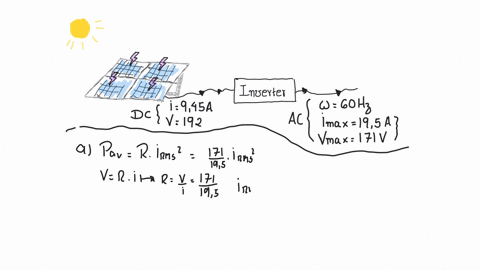 Inverter
DC { i = 9,45 A
V = 192
AC { ω = 60 Hz
imax = 19,5 A
Vmax = 171 V
a) Pav = R. irms² = 171/19,5 . irms²
V = R. i ↦ R = V/i = 171/19,5 ir